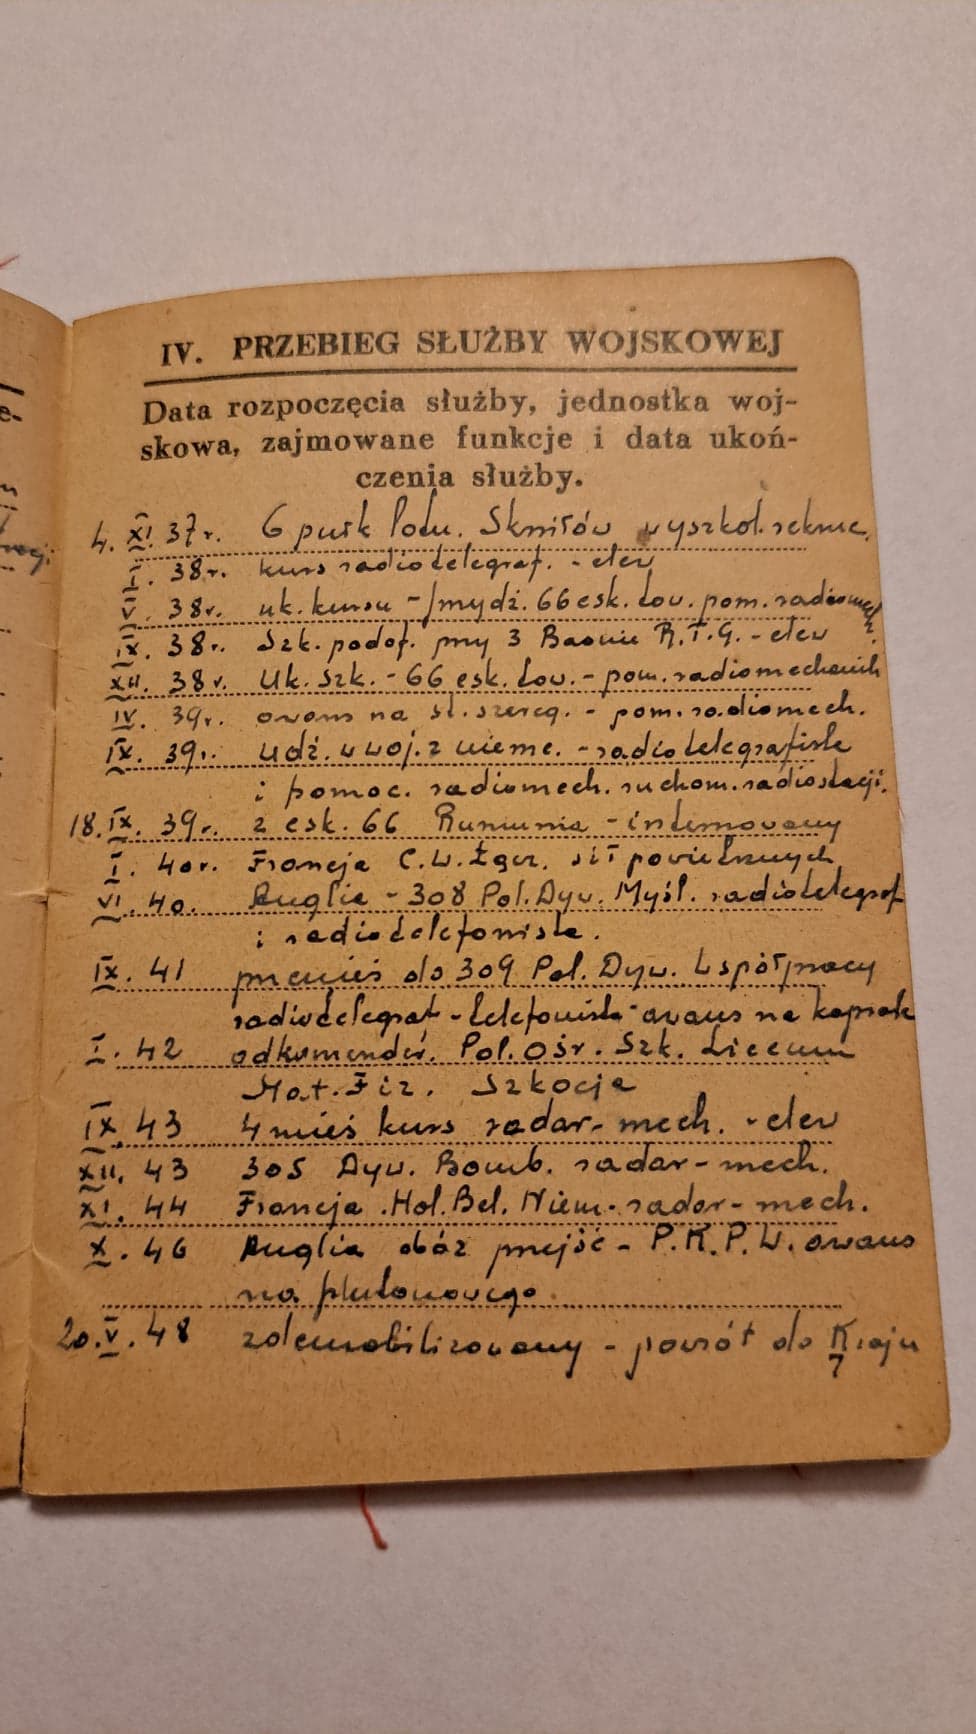 IV. PRZEBIEG SŁUŻBY WOJSKOWEJ
Data rozpoczęcia służby, jednostka woj-
skowa, zajmowane funkcje i data ukoń-
czenia służby.
4. XI. 37 r. 6 pułk lotn. Skniłów wyszkol. rekruc.
I. 38 r. kurs radiotelegraf. - elew
V. 38 r. uk. kursu - przydź. 66 esk. tow. pom. radiomech.
IX. 38 r. Szk. podof. przy 3 Baonie R.T.G. - elew
XII. 38 r. Uk. Szk. - 66 esk. tow. - pom. radiomechanik
IV. 39 r. awans na st. szereg. - pom. radiomech.
IX. 39 r. Udź. w woj. z niemc. - radiotelegrafista
i pomoc. radiomech. ruchom. radiostacji.
18. IX. 39 r. z esk. 66 Rumunia - internowany
I. 40 r. Francja C.W. Lger. sił powietrznych
VI. 40. Anglia - 308 Pol. Dyw. Myśl. radiotelegraf
i radiotelefonista.
IX. 41 przenieś do 309 Pol. Dyw. Współpracy
radiotelegraf - telefonista - awans na kaprala
I. 42 odkomender. Pol. Ośr. Szk. Liceum
Mat. Fiz. Szkocja
IX. 43 4 mieś kurs radar-mech. - elew
XII. 43 305 Dyw. Bomb. radar-mech.
XI. 44 Francja. Hol. Bel. Niem. - radar-mech.
X. 46 Anglia obóz przejść - P.K.P.W. awans
na plutonowego
20. V. 48 zdemobilizowany - powrót do Kraju
7